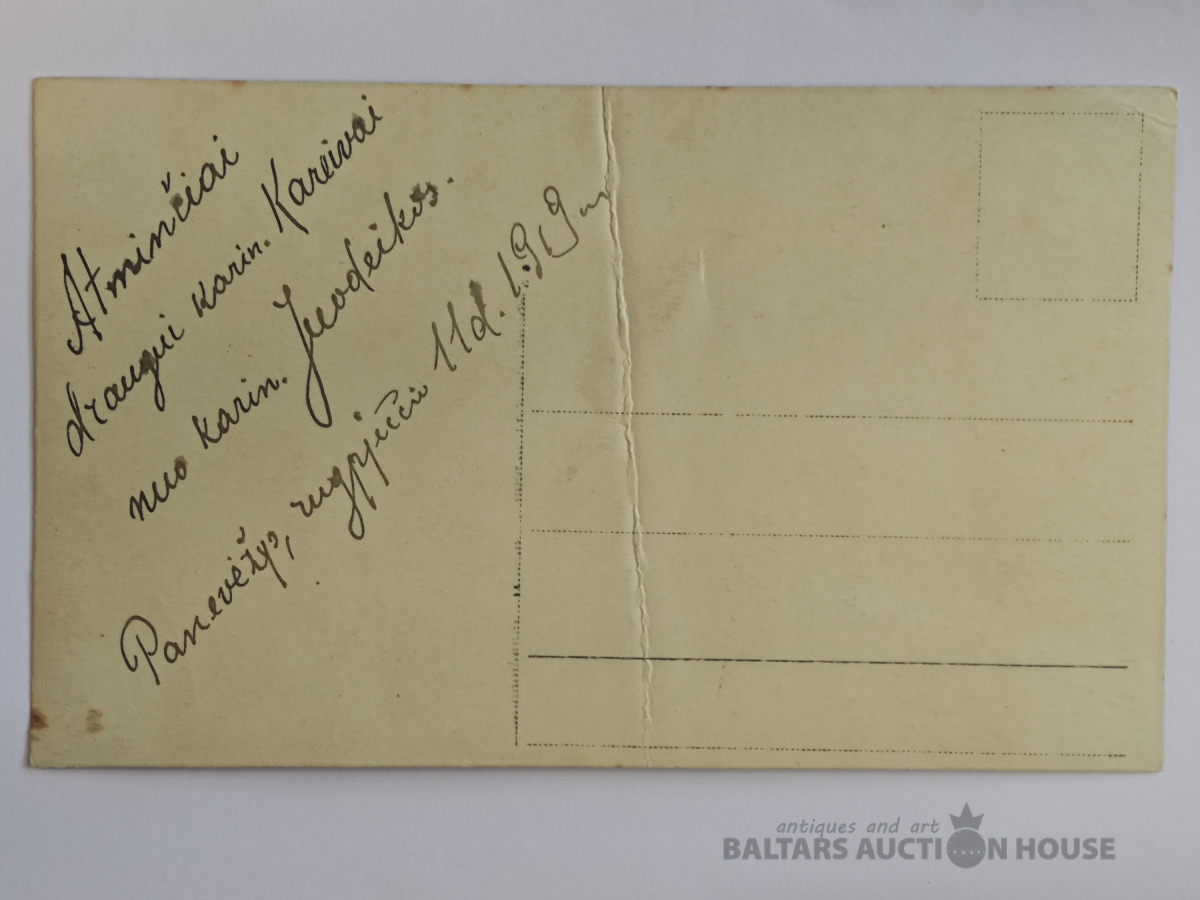 Atminčiai
draugui karin. Kareivai
nuo karin. Juodeikos.
Panevėžys, rugpjučio 11d. 1919 m
antiques and art
BALTARS AUCTION HOUSE